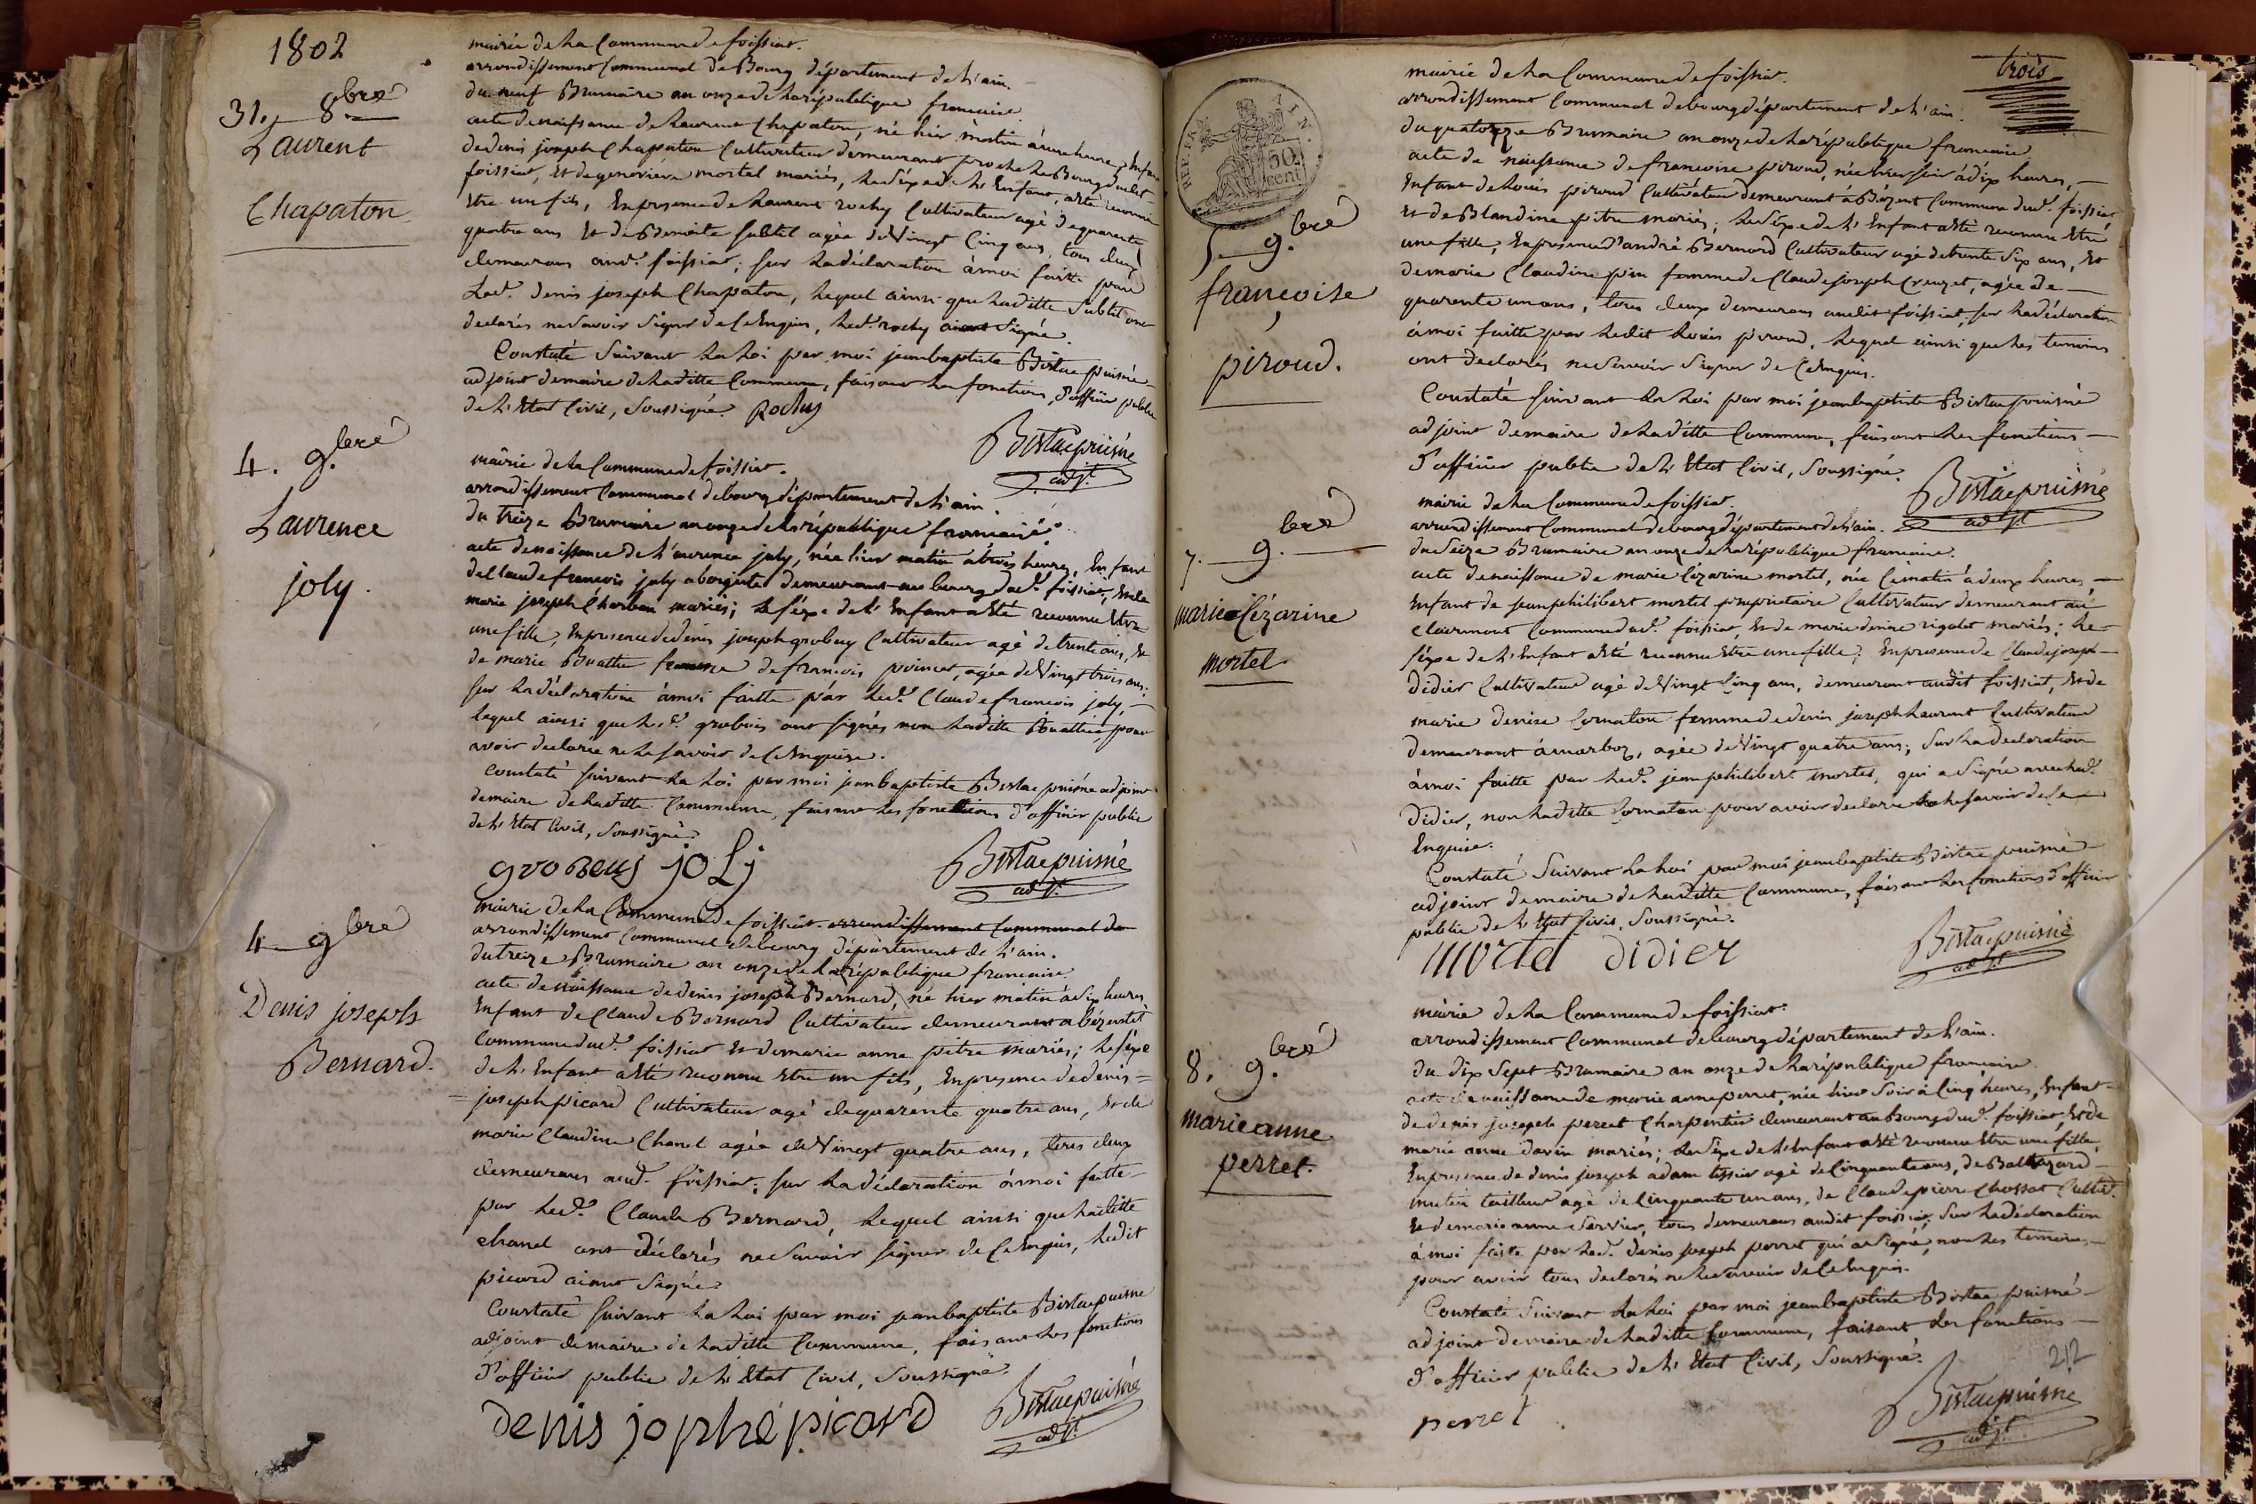 1802
31. 8bre
Laurent
Chapaton
mairie de la Commune de foissiat.
arrondissement Communal de Bourg département de l'ain.
du neuf Brumaire an onze de la république francaise.
acte de naissance de Laurent Chapaton, né hier matin à une heure, Enfant
de denis joseph Chapaton Cultivateur demeurant proche le Bourg dudt
foissiat, Et de genevieve mortel mariés, le sexe de l'Enfant, a été reconnu
Etre un fils, En presence de Laurent rochy Cultivateur agé de quarente
quatre ans Et de Benoite subtil agée de Vingt Cinq ans, tous deux
demeurans audt foissiat; sur la déclaration à moi faitte par
Ledt denis joseph Chapaton, lequel ainsi que laditte subtil ont
declarés ne savoir signer de Ce Enquis, ledt rochy aiant signé.
Constaté suivant la loi par moi jean baptiste Bistac puisné
adjoint de maire de laditte Commune, faisant les fonctions d'officier public
de l'Etat Civil, soussigné. Rochy
Bistac puisné
adjt.
4. 9.bre
Laurence
joly.
mairie de la Commune de foissiat.
arrondissement Communal de bourg département de l'ain.
du treize Brumaire an onze de la république francaise.
acte de naissance de Laurence joly, née hier matin à trois heures, Enfant
de Claude francois joly aubergiste demeurant au bourg dudt foissiat, Et de
marie joseph Charbon mariés; le sexe de l'Enfant a été reconnu Etre
une fille, En presence de denis joseph grobuy Cultivateur agé de trente ans, Et
de marie Buattier femme de francois poincet, agée de Vingt trois ans;
sur la déclaration à moi faitte par ledt Claude francois joly,
lequel ainsi que ledt grobuis ont signés non laditte Buattier, pour
avoir declaré ne le savoir de Ce Enquise.
Constaté suivant la loi par moi jean baptiste Bistac puisné adjoint
de maire de laditte Commune, faisant les fonctions d'officier public
de l'Etat Civil, soussigné.
groBeuy joLj
Bistac puisné
adjt.
4 9bre
Denis joseph
Bernard.
mairie de la Commune de foissiat. arrondissement Communal de
arrondissement Communal de bourg département de l'ain.
du treize Brumaire an onze de la république francaise.
acte de naissance de denis joseph Bernard, né hier matin à six heures,
Enfant de Claude Bernard Cultivateur demeurant a bézentet
Commune dudt foissiat Et de marie anne pitre mariés; le sexe
de l'Enfant a été reconnu Etre un fils, En presence de denis =
= joseph picard Cultivateur agé de quarente quatre ans, Et de
marie Claudine Chanel agée de Vingt quatre ans, tous deux
demeurans audt foissiat; sur la déclaration à moi faitte
par ledt Claude Bernard, lequel ainsi que laditte
chanel ont déclarés ne savoir signer de Ce Enquis, ledit
picard aiant signé.
Constaté suivant la loi par moi jean baptiste Bistac puisné
adjoint de maire de laditte Commune, faisant les fonctions
d'officier public de l'Etat Civil, soussigné.
denis jophé picard
Bistac puisné
adjt.
trois
AIN
50
cent
5. 9.bre
francoise
piroud.
mairie de la Commune de foissiat.
arrondissement Communal de bourg département de l'ain.
du quatorze Brumaire an onze de la république francaise
acte de naissance de francoise piroud, née hier soir à dix heures,
Enfant de Louis piroud Cultivateur demeurant à Bézent Commune dudt foissiat
Et de Blandine pitre mariés; le sexe de l'Enfant a été reconnu Etre
une fille, En presence d'andré Bernard Cultivateur agé de trente six ans, Et
de marie Claudine pin femme de Claude joseph Creuzet, agée de
quarente un ans, tous deux demeurans audit foissiat, sur la déclaration
à moi faitte par ledit Louis piroud, lequel ainsi que les temoins
ont declarés ne savoir signer de Ce Enquis.
Constaté suivant la loi par moi jean baptiste Bistac puisné
adjoint de maire de laditte Commune, faisant les fonctions
d'officier public de l'Etat Civil, soussigné.
Bistac puisné
adjt
7. 9.bre
marie Cézarine
mortel
mairie de la Commune de foissiat.
arrondissement Communal de bourg département de l'ain.
du seize Brumaire an onze de la république francaise.
acte de naissance de marie Cézarine mortel, née Ce matin à deux heures,
Enfant de jean philibert mortel propriétaire Cultivateur demeurant au
Clairmont Commune dudt foissiat, Et de marie denise rigolet mariés; le
sexe de l'Enfant a été reconnu Etre une fille; En presence de Claude joseph
Didier Cultivateur agé de Vingt Cinq ans, demeurant audit foissiat, Et de
marie denise Cornaton femme de denis joseph Laurent Cultivateur
demeurant à marboz, agée de Vingt quatre ans; sur la declaration
à moi faitte par ledt jean philibert mortel, qui a signé avec ledt
Didier, non laditte Cornaton pour avoir declaré ne le savoir de Ce
Enquise.
Constaté suivant la loi par moi jean baptiste Bistac puisné
adjoint de maire de laditte Commune, faisant les fonctions d'officier
public de l'Etat Civil, soussigné.
mortel didier
Bistac puisné
adjt
8. 9.bre
marie anne
perret.
mairie de la Commune de foissiat.
arrondissement Communal de bourg département de l'ain.
du dix sept Brumaire an onze de la république francaise
acte de naissance de marie anne perret, née hier soir à Cinq heures, Enfant
de denis joseph perret Charpentier demeurant au Bourg dudt foissiat, Et de
marie anne davin mariés; le sexe de l'Enfant a été reconnu Etre une fille,
En presence de denis joseph adam tissier agé de Cinquante ans, de Baltazard
mutin tailleur agé de Cinquante un ans, de Claude pierre Chossat Cultivr
Et de marie anne Servier, tous demeurans audit foissiat, sur la déclaration
à moi faite par ledt denis joseph perret qui a signé, non les temoins
pour avoir tous declarés ne le savoir de Ce Enquis.
Constaté suivant la loi par moi jean baptiste Bistac puisné
adjoint de maire de laditte Commune, faisant les fonctions
d'officier public de l'Etat Civil, soussigné.
212
perret
Bistac puisné
adjt